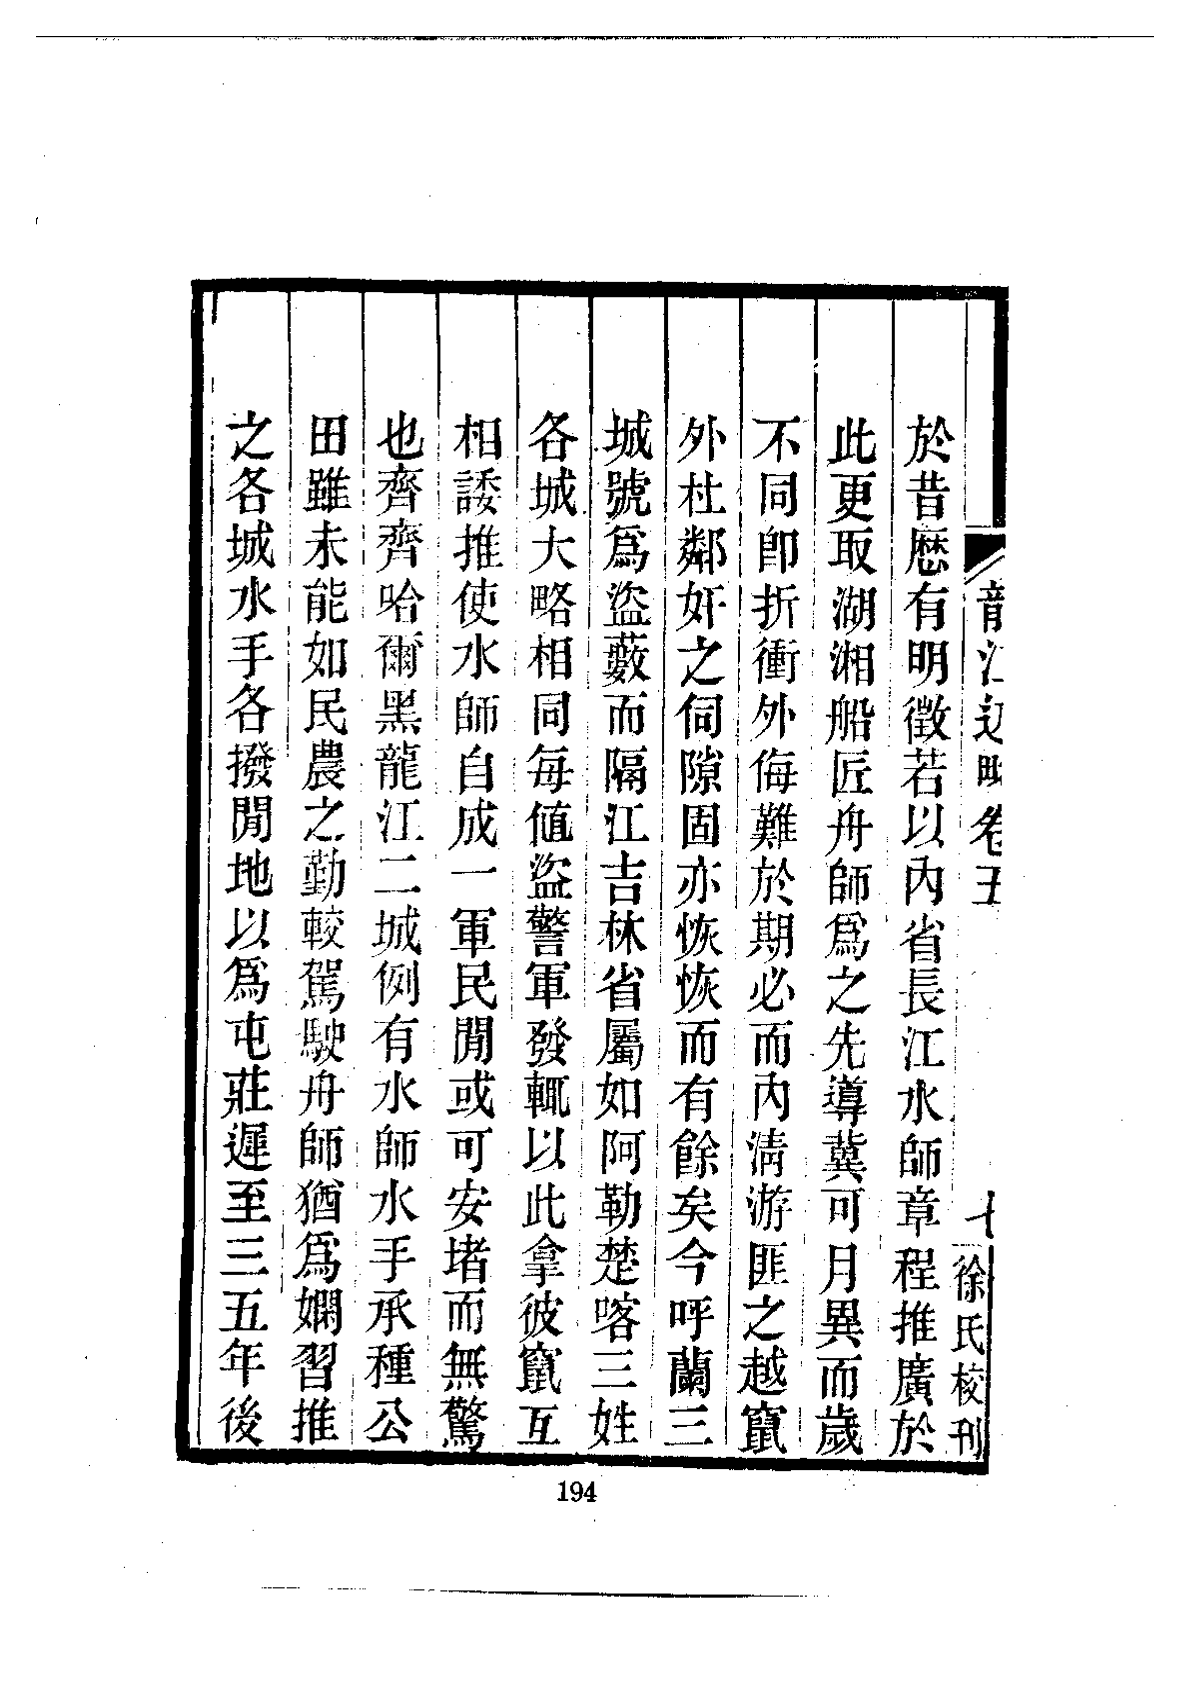 龍江述略卷五
七
徐氏校刊
於昔歷有明徵若以內省長江水師章程推廣於
此更取湖湘船匠舟師爲之先導冀可月異而歲
不同卽折衝外侮難於期必而內淸游匪之越竄
外杜鄰奸之伺隙固亦恢恢而有餘矣今呼蘭三
城號爲盜藪而隔江吉林省屬如阿勒楚喀三姓
各城大略相同每値盜警軍發輒以此拿彼竄互
相諉推使水師自成一軍民閒或可安堵而無驚
也齊齊哈爾黑龍江二城例有水師水手承種公
田雖未能如民農之勤較駕駛舟師猶爲嫻習推
之各城水手各撥閒地以爲屯莊遲至三五年後
194